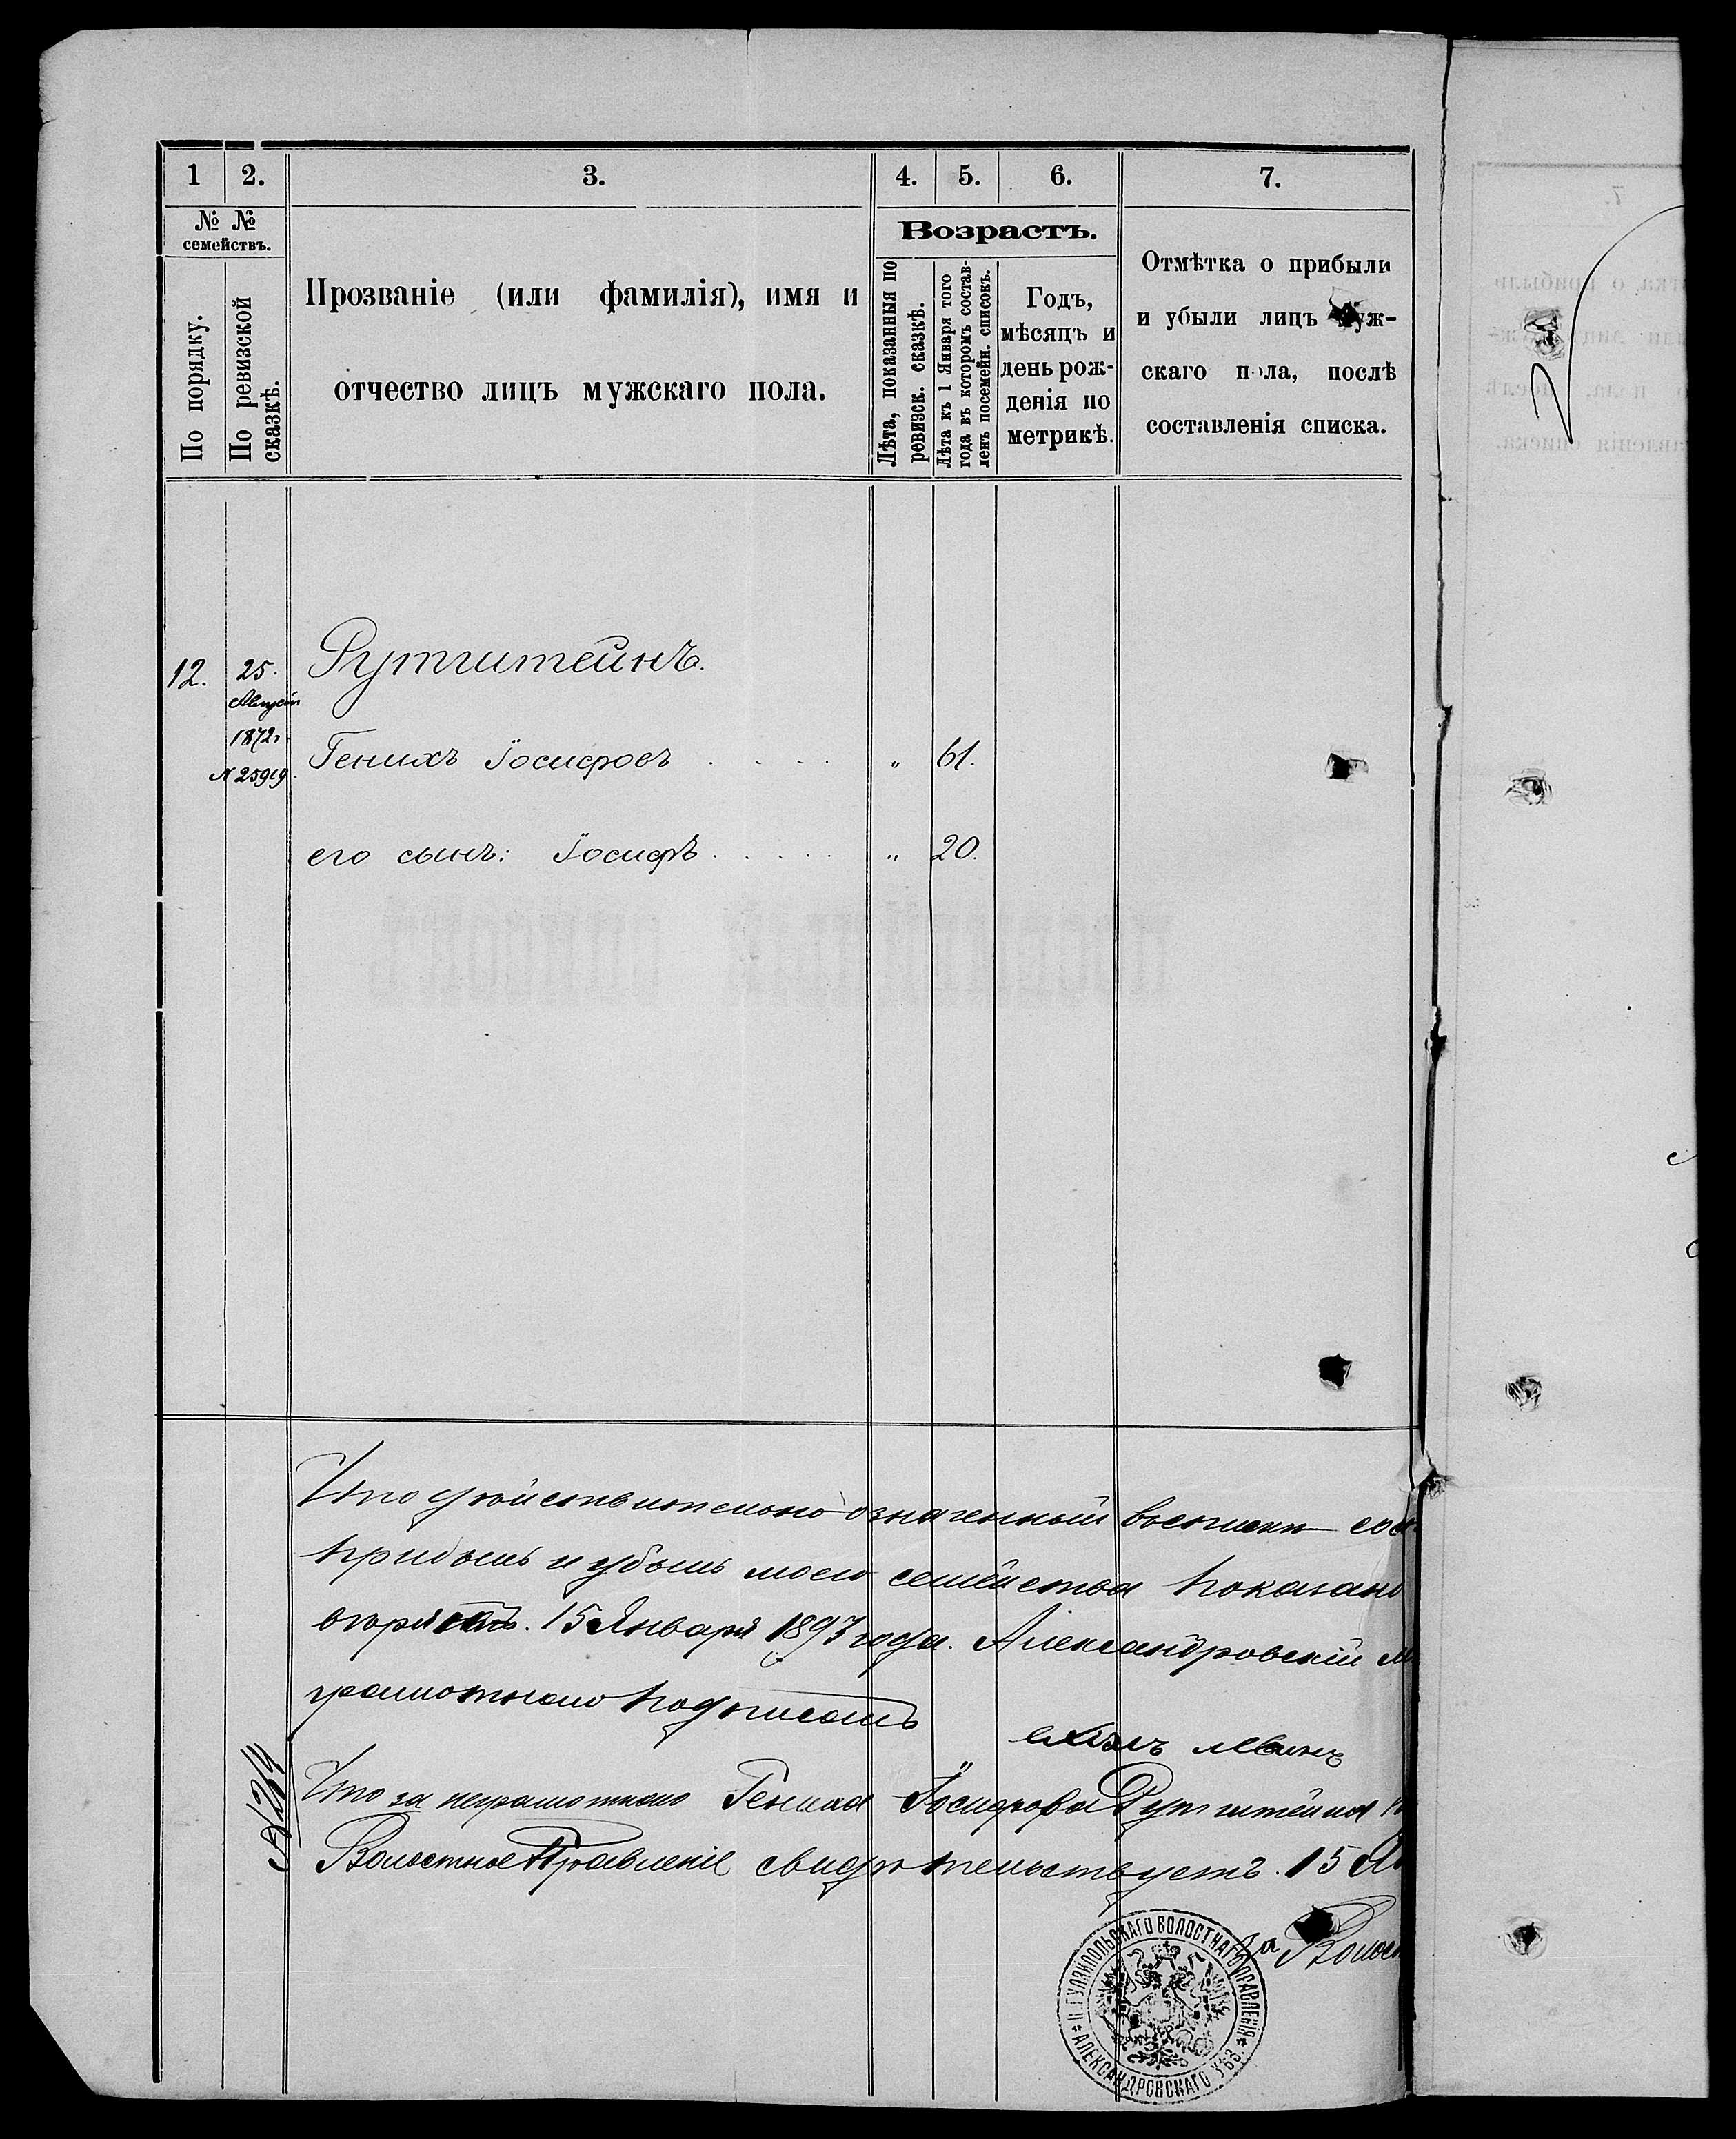 1 2. 3. 4. 5. 6. 7.
№ № семействъ.
По порядку.
По ревизской сказкѣ.
Прозваніе (или фамилія), имя и
отчество лицъ мужскаго пола.
Возрастъ.
Лѣта, показанныя по ревизск. сказкѣ.
Лѣта къ 1 Января того года въ которомъ составленъ посемейн. списокъ.
Годъ,
мѣсяцъ и
день рож-
денія по
метрикѣ.
Отмѣтка о прибыли
и убыли лицъ муж-
скаго пола, послѣ
составленія списка.
12. 25. Рутштейнъ.
1872г.
№ 25919. Генихъ Іосифовъ . . . . „ 61.
его сынъ: Іосифъ . . . . . „ 20.
Что действительно означенный
прибыль и убыль моего семейства показано
15 Января 1897 года. Александровскій
грамотнаго подписалъ
Что за неграмотнаго Гениха Іосифова Рутштейна
Волостное Правленіе свидѣтельствуетъ. 15
II. ГУЛЯЙПОЛЬСКАГО ВОЛОСТНАГО ПРАВЛЕНІЯ * АЛЕКСАНДРОВСКАГО УѢЗ. *